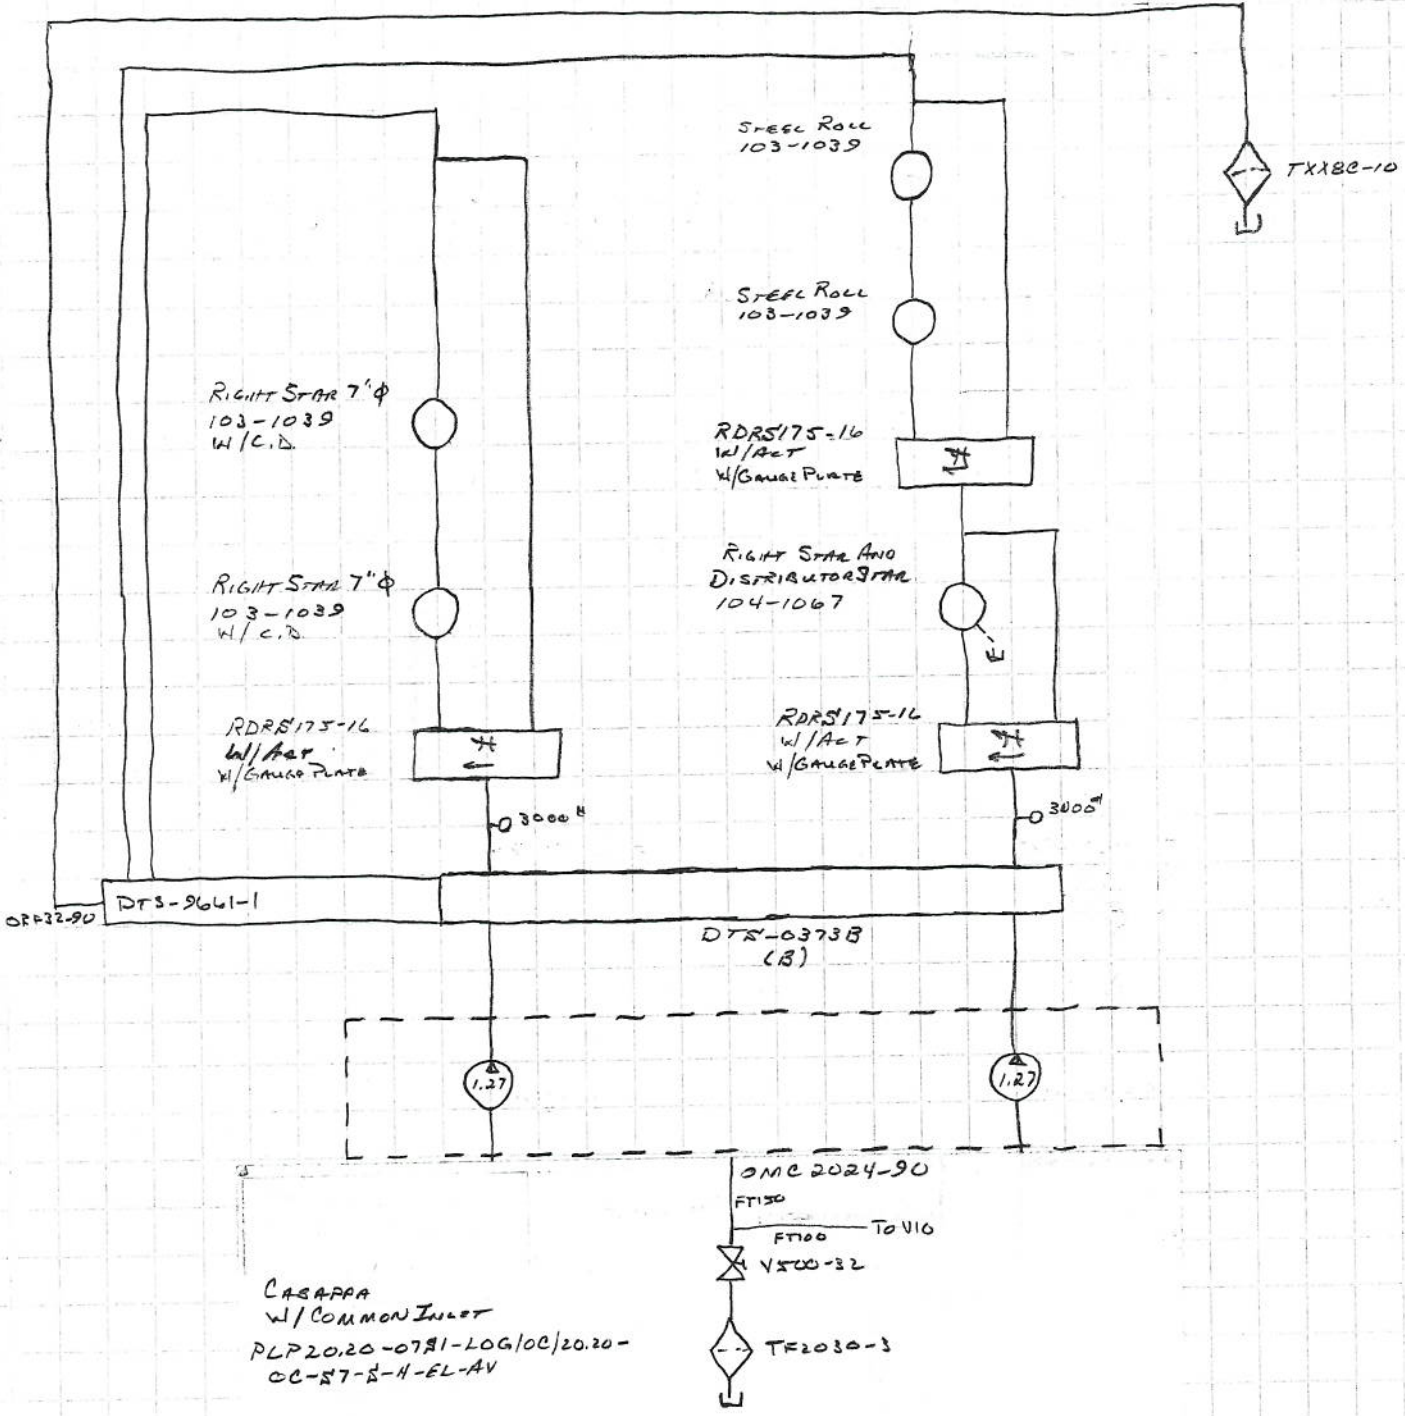 STEEL ROLL
103-1039
TXX8C-10
STEEL ROLL
103-1039
RIGHT STAR 7"Φ
103-1039
W/C.D.
RDRS175-16
W/ACT
W/GAUGE PLATE
RIGHT STAR AND
DISTRIBUTOR STAR
104-1067
RIGHT STAR 7"Φ
103-1039
W/C.D.
RDRS175-16
W/ACT
W/GAUGE PLATE
RDRS175-16
W/ACT
W/GAUGE PLATE
3000#
3000#
DTS-9661-1
DTS-0373B
(B)
1.27
1.27
OMC 2024-90
FT150
FT100
TO V10
V500-32
CASAPPA
W/COMMON INLET
TF2030-3